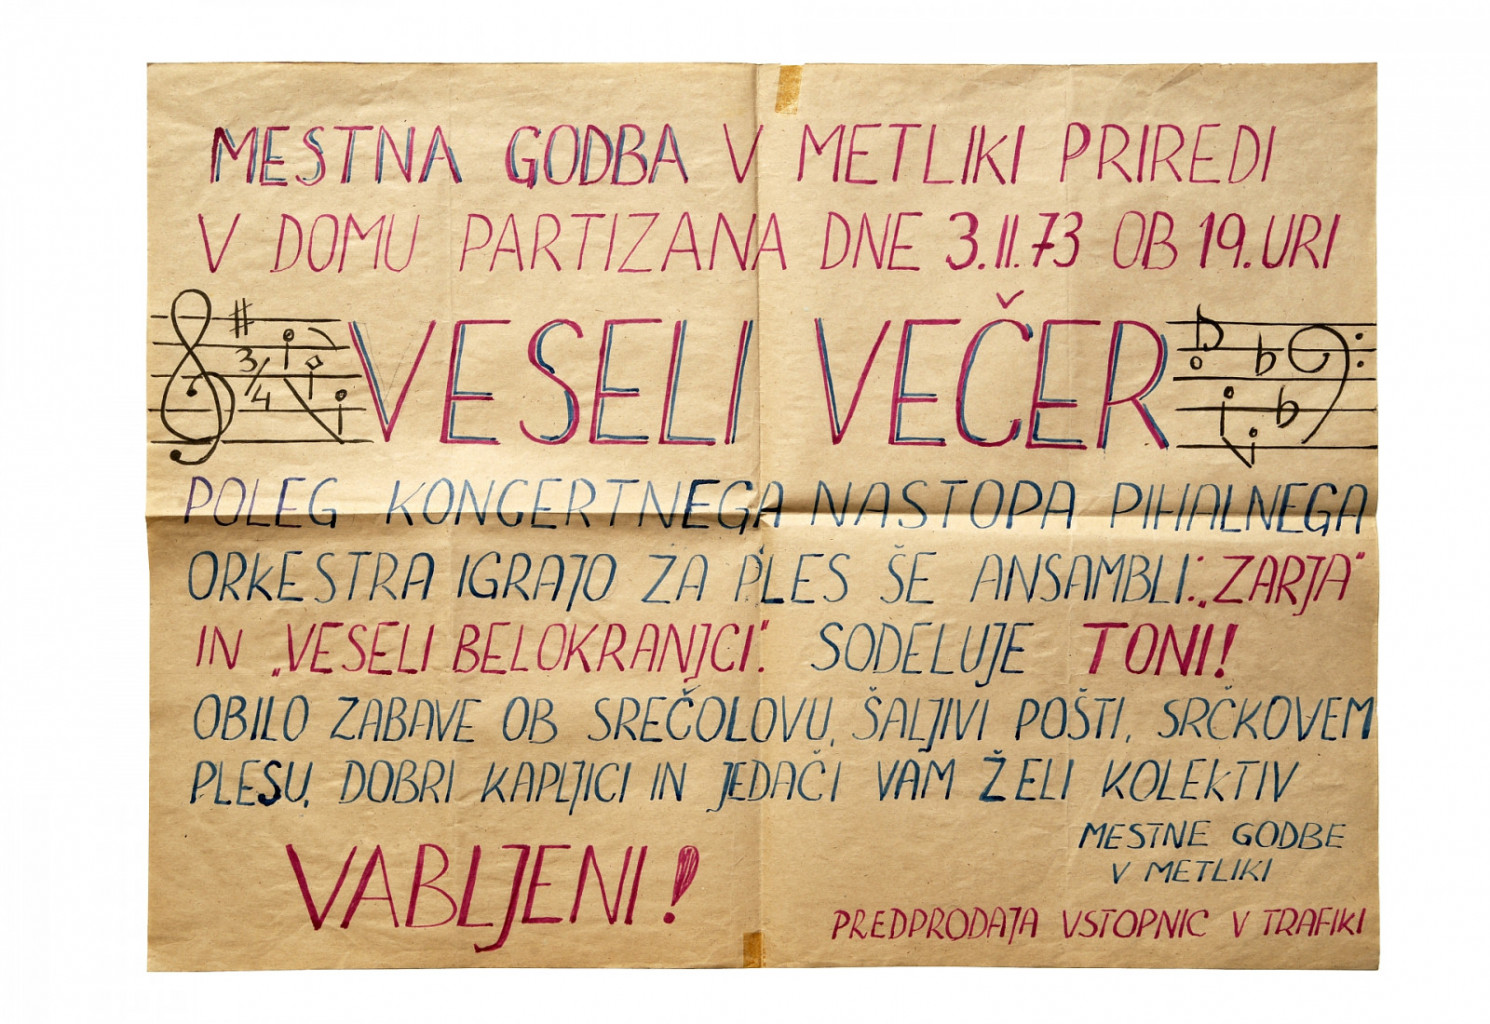 MESTNA GODBA V METLIKI PRIREDI
V DOMU PARTIZANA DNE 3.II.73 OB 19. URI
VESELI VEČER
3/4
POLEG KONCERTNEGA NASTOPA PIHALNEGA
ORKESTRA IGRAJO ZA PLES ŠE ANSAMBLI: „ZARJA"
IN „VESELI BELOKRANJCI". SODELUJE TONI!
OBILO ZABAVE OB SREČOLOVU, ŠALJIVI POŠTI, SRČKOVEM
PLESU, DOBRI KAPLJICI IN JEDAČI VAM ŽELI KOLEKTIV
MESTNE GODBE
V METLIKI
VABLJENI!
PREDPRODAJA VSTOPNIC V TRAFIKI